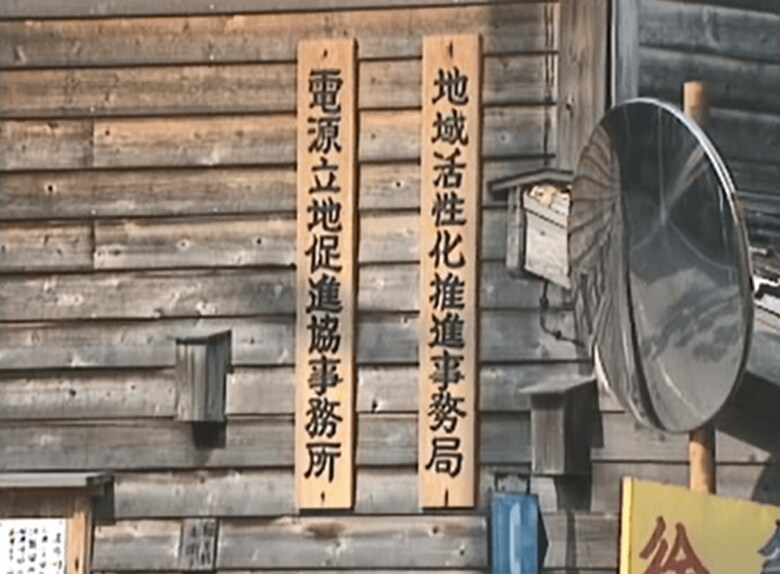 地域活性化推進事務局
電源立地促進協事務所
徐